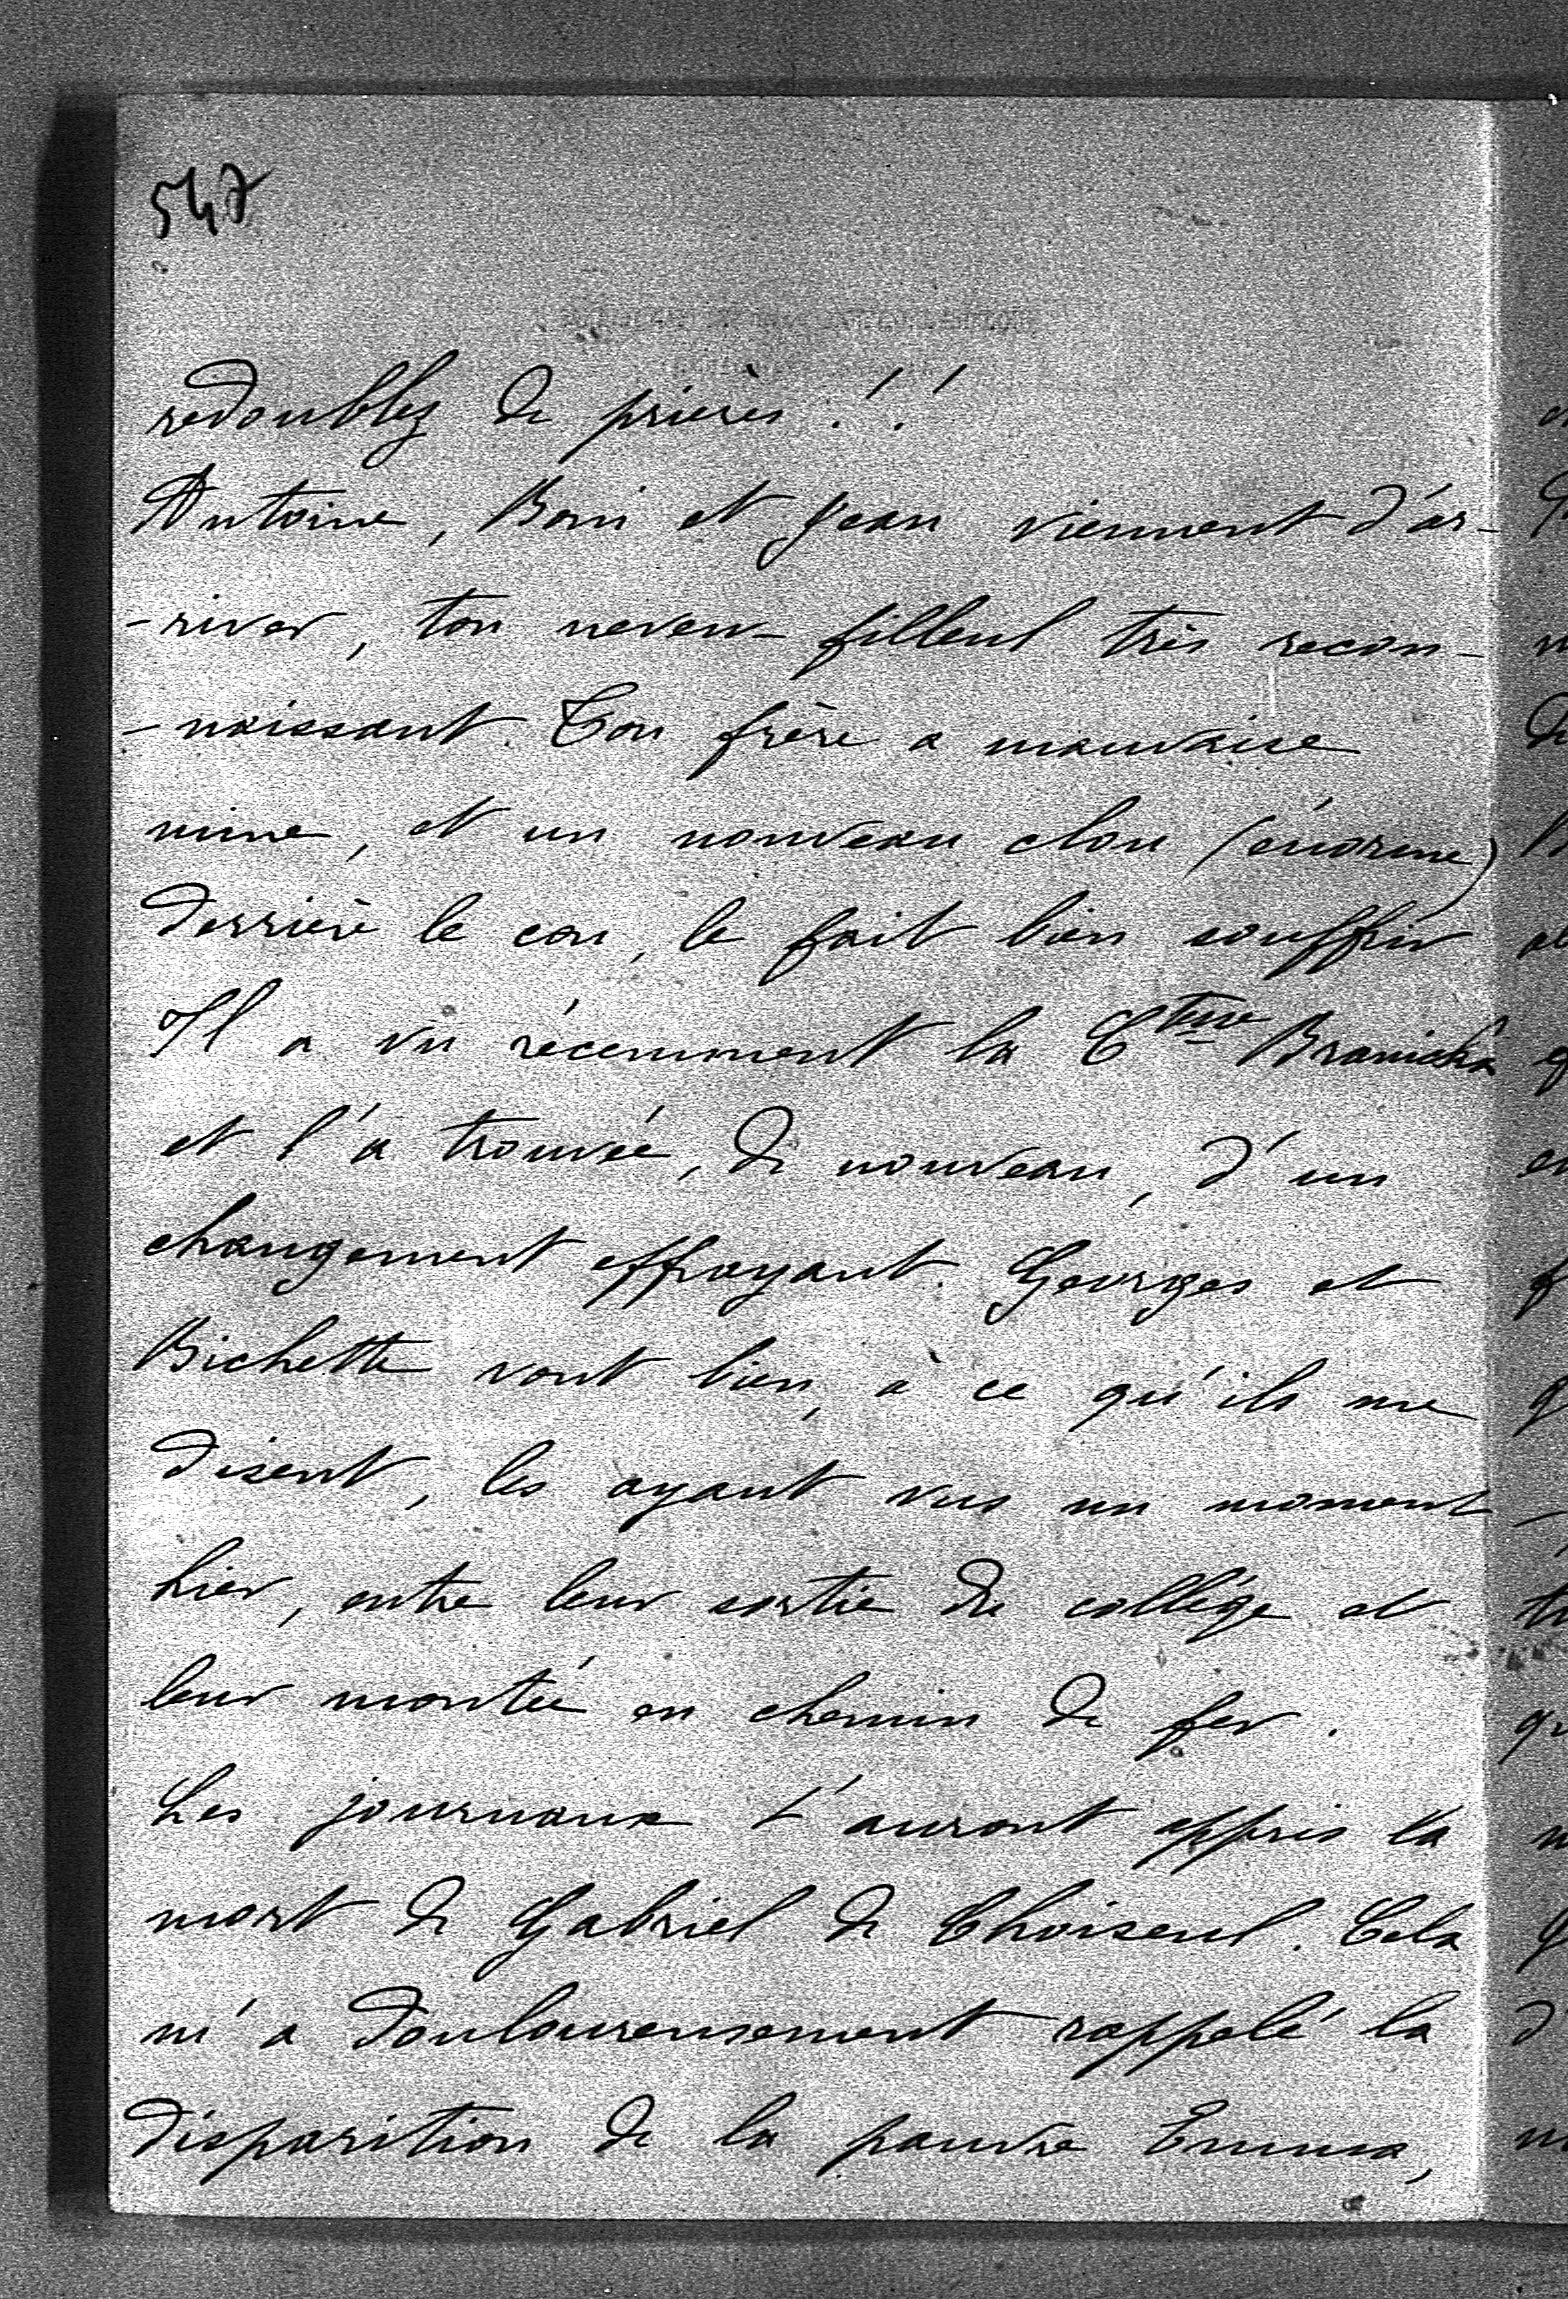 547
redoublez de prières !!
Antoine, Boni et Jean viennent d'ar-
-river, ton neveu-filleul très recon-
-naissant. Ton frère a mauvaise
mine, et un nouveau clou (énorme)
derrière le cou, le fait bien souffrir.
Il a vu récemment la Ctesse Branicka
et l'a trouvée, de nouveau, d'un
changement effrayant. Georges et
Bichette vont bien, à ce qu'ils me
disent, les ayant vus un moment
hier, entre leur sortie du collége et
leur montée en chemin de fer.
Les journaux t'auront appris la
mort de Gabriel de Choiseul. Cela
m'a douloureusement rappelé la
disparition de la pauvre Emma,